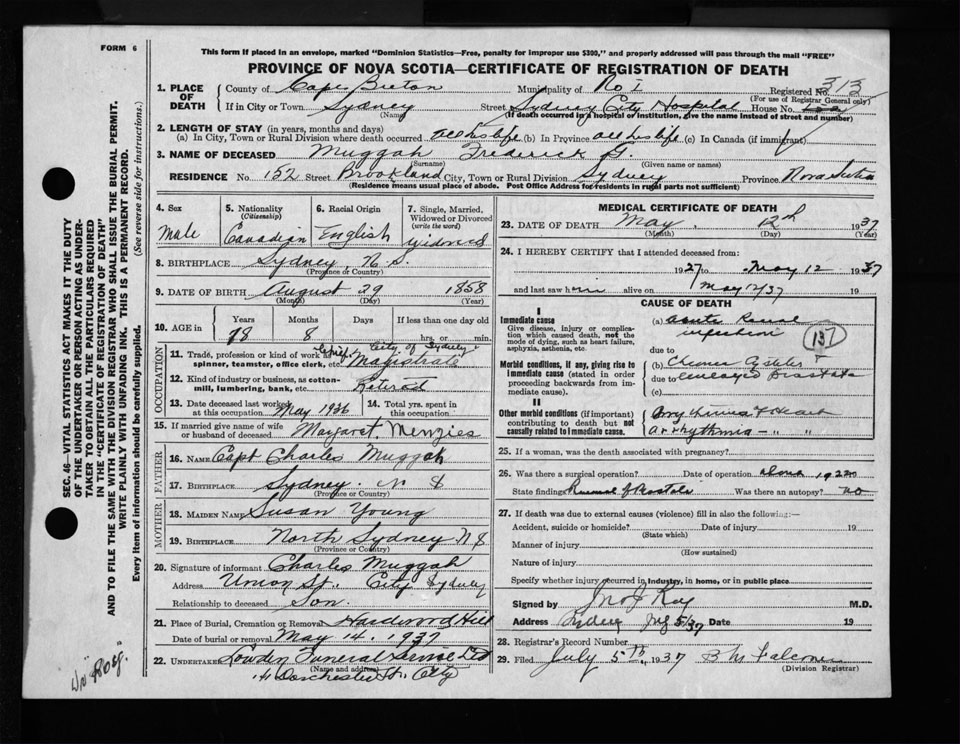 FORM 6
This form if placed in an envelope, marked "Dominion Statistics—Free, penalty for improper use $300," and properly addressed will pass through the mail "FREE"
PROVINCE OF NOVA SCOTIA—CERTIFICATE OF REGISTRATION OF DEATH
1. PLACE OF DEATH
County of Cape Breton Municipality of No I Registered No. 313
(For use of Registrar General only)
If in City or Town Sydney Street Sydney City Hospital House No.
(Name) (If death occurred in a hospital or institution, give the name instead of street and number)
2. LENGTH OF STAY (in years, months and days)
(a) In City, Town or Rural Division where death occurred all his life (b) In Province all his life (c) In Canada (if immigrant)
3. NAME OF DECEASED Muggah Frederick G.
(Surname) (Given name or names)
RESIDENCE No. 152 Street Brookland City, Town or Rural Division Sydney Province Nova Scotia
(Residence means usual place of abode. Post Office Address for residents in rural parts not sufficient)
4. Sex
Male
5. Nationality
(Citizenship)
Canadian
6. Racial Origin
English
7. Single, Married, Widowed or Divorced
(write the word)
Widowed
8. BIRTHPLACE Sydney, N. S.
(Province or Country)
9. DATE OF BIRTH August 29 1858
(Month) (Day) (Year)
10. AGE in Years Months Days If less than one day old
78 8 hrs. or min.
OCCUPATION
11. Trade, profession or kind of work as spinner, teamster, office clerk, etc. City of Sydney Magistrate
12. Kind of industry or business, as cotton-mill, lumbering, bank, etc. Retired
13. Date deceased last worked at this occupation May 1936
14. Total yrs. spent in this occupation
15. If married give name of wife or husband of deceased Margaret Menzies
FATHER
16. NAME Capt Charles Muggah
17. BIRTHPLACE Sydney N S
(Province or Country)
MOTHER
18. MAIDEN NAME Susan Young
19. BIRTHPLACE North Sydney N S
(Province or Country)
20. Signature of informant Charles Muggah
Address Union St., City Sydney
Relationship to deceased Son.
21. Place of Burial, Cremation or Removal Hardwood Hill
Date of burial or removal May 14. 1937
22. UNDERTAKER Lowden Funeral Service Ltd
(Name and address)
Dorchester St. City
MEDICAL CERTIFICATE OF DEATH
23. DATE OF DEATH May 12th 1937
(Month) (Day) (Year)
24. I HEREBY CERTIFY that I attended deceased from:
1927 to May 12 1937
and last saw him alive on May 12/37 19
CAUSE OF DEATH
I
Immediate cause
Give disease, injury or complication which caused death, not the mode of dying, such as heart failure, asphyxia, asthenia, etc.
(a) Acute Renal
137
due to
Morbid conditions, if any, giving rise to immediate cause (stated in order proceeding backwards from immediate cause).
(b)
due to enlarged Prostate
(c)
II
Other morbid conditions (if important) contributing to death but not causally related to immediate cause.
Arrhythmia - " "
25. If a woman, was the death associated with pregnancy?
26. Was there a surgical operation? Date of operation
State finding Was there an autopsy? no
27. If death was due to external causes (violence) fill in also the following:—
Accident, suicide or homicide? Date of injury 19
(State which)
Manner of injury
(How sustained)
Nature of injury
Specify whether injury occurred in industry, in home, or in public place
Signed by Jno J Roy M.D.
Address Sydney July 5/37 Date 19
28. Registrar's Record Number
29. Filed July 5th, 1937 B M Falconer
(Division Registrar)
SEC. 46—VITAL STATISTICS ACT MAKES IT THE DUTY
OF THE UNDERTAKER OR PERSON ACTING AS UNDER-
TAKER TO OBTAIN ALL THE PARTICULARS REQUIRED
IN THE "CERTIFICATE OF REGISTRATION OF DEATH"
AND TO FILE THE SAME WITH THE DIVISION REGISTRAR WHO SHALL ISSUE THE BURIAL PERMIT.
WRITE PLAINLY WITH UNFADING INK. THIS IS A PERMANENT RECORD.
Every item of information should be carefully supplied. (See reverse side for instructions.)
Dr Roy.